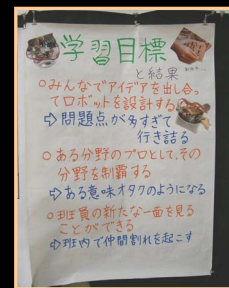 学習目標
と結果
○みんなでアイデアを出し合っ
てロボットを設計する
⇨問題点が多すぎて
行き詰る
○ある分野のプロとして、その
分野を制覇する
⇨ある意味オタクのようになる
○班員の新たな一面を見る
ことができる
⇨班内で仲間割れを起こす